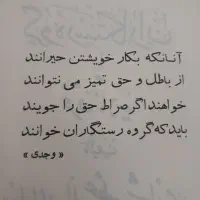 آنانکه بکار خویشتن حیرانند
از باطل و حق تمیز می نتوانند
خواهند اگر صراط حق را جویند
باید که گروه رستگاران خوانند
« وجدی »